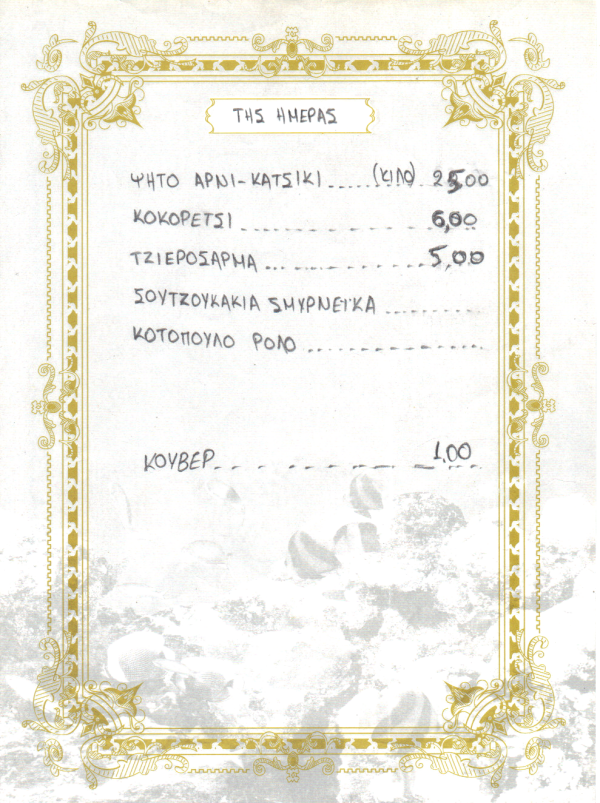 ΤΗΣ ΗΜΕΡΑΣ
ΨΗΤΟ ΑΡΝΙ-ΚΑΤΣΙΚΙ (ΚΙΛΟ) 25,00
ΚΟΚΟΡΕΤΣΙ 6,00
ΤΖΙΕΡΟΣΑΡΜΑ 5,00
ΣΟΥΤΖΟΥΚΑΚΙΑ ΣΜΥΡΝΕΪΚΑ
ΚΟΤΟΠΟΥΛΟ ΡΟΛΟ
ΚΟΥΒΕΡ 1,00